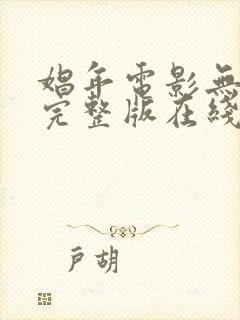 娼年電影無
完整版在綫
戶胡